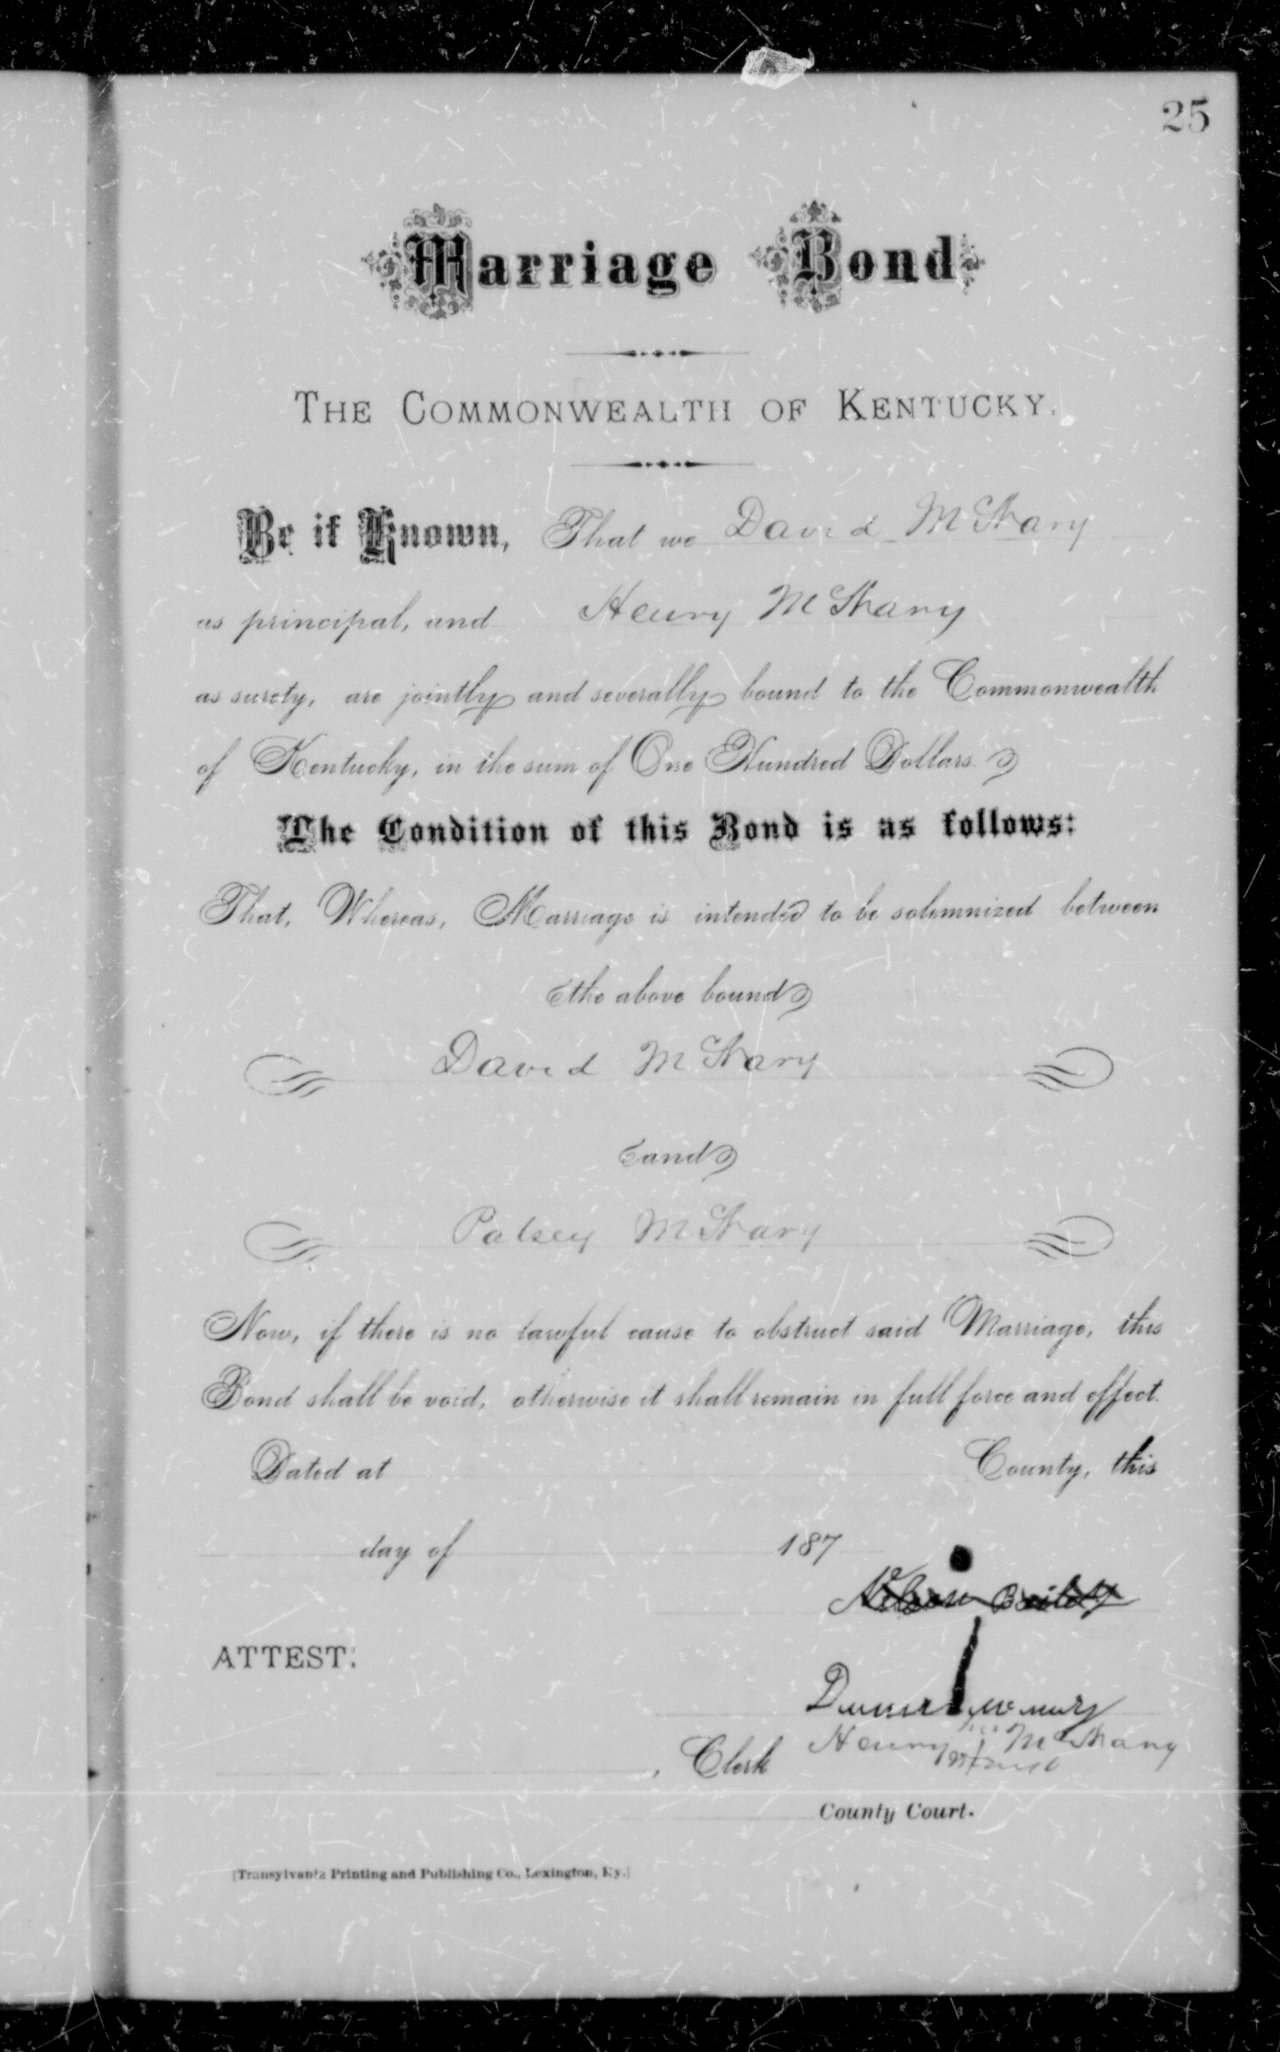 25
Marriage Bond
THE COMMONWEALTH OF KENTUCKY.
Be it Known, That we David
as principal, and Henry
as surety, are jointly and severally bound to the Commonwealth
of Kentucky, in the sum of One Hundred Dollars.
The Condition of this Bond is as follows:
That, Whereas, Marriage is intended to be solemnized between
the above bound
David
and
Now, if there is no lawful cause to obstruct said Marriage, this
Bond shall be void, otherwise it shall remain in full force and effect.
Dated at County, this
day of 187
ATTEST:
Henry
, Clerk
County Court.
[Transylvania Printing and Publishing Co., Lexington, Ky.]